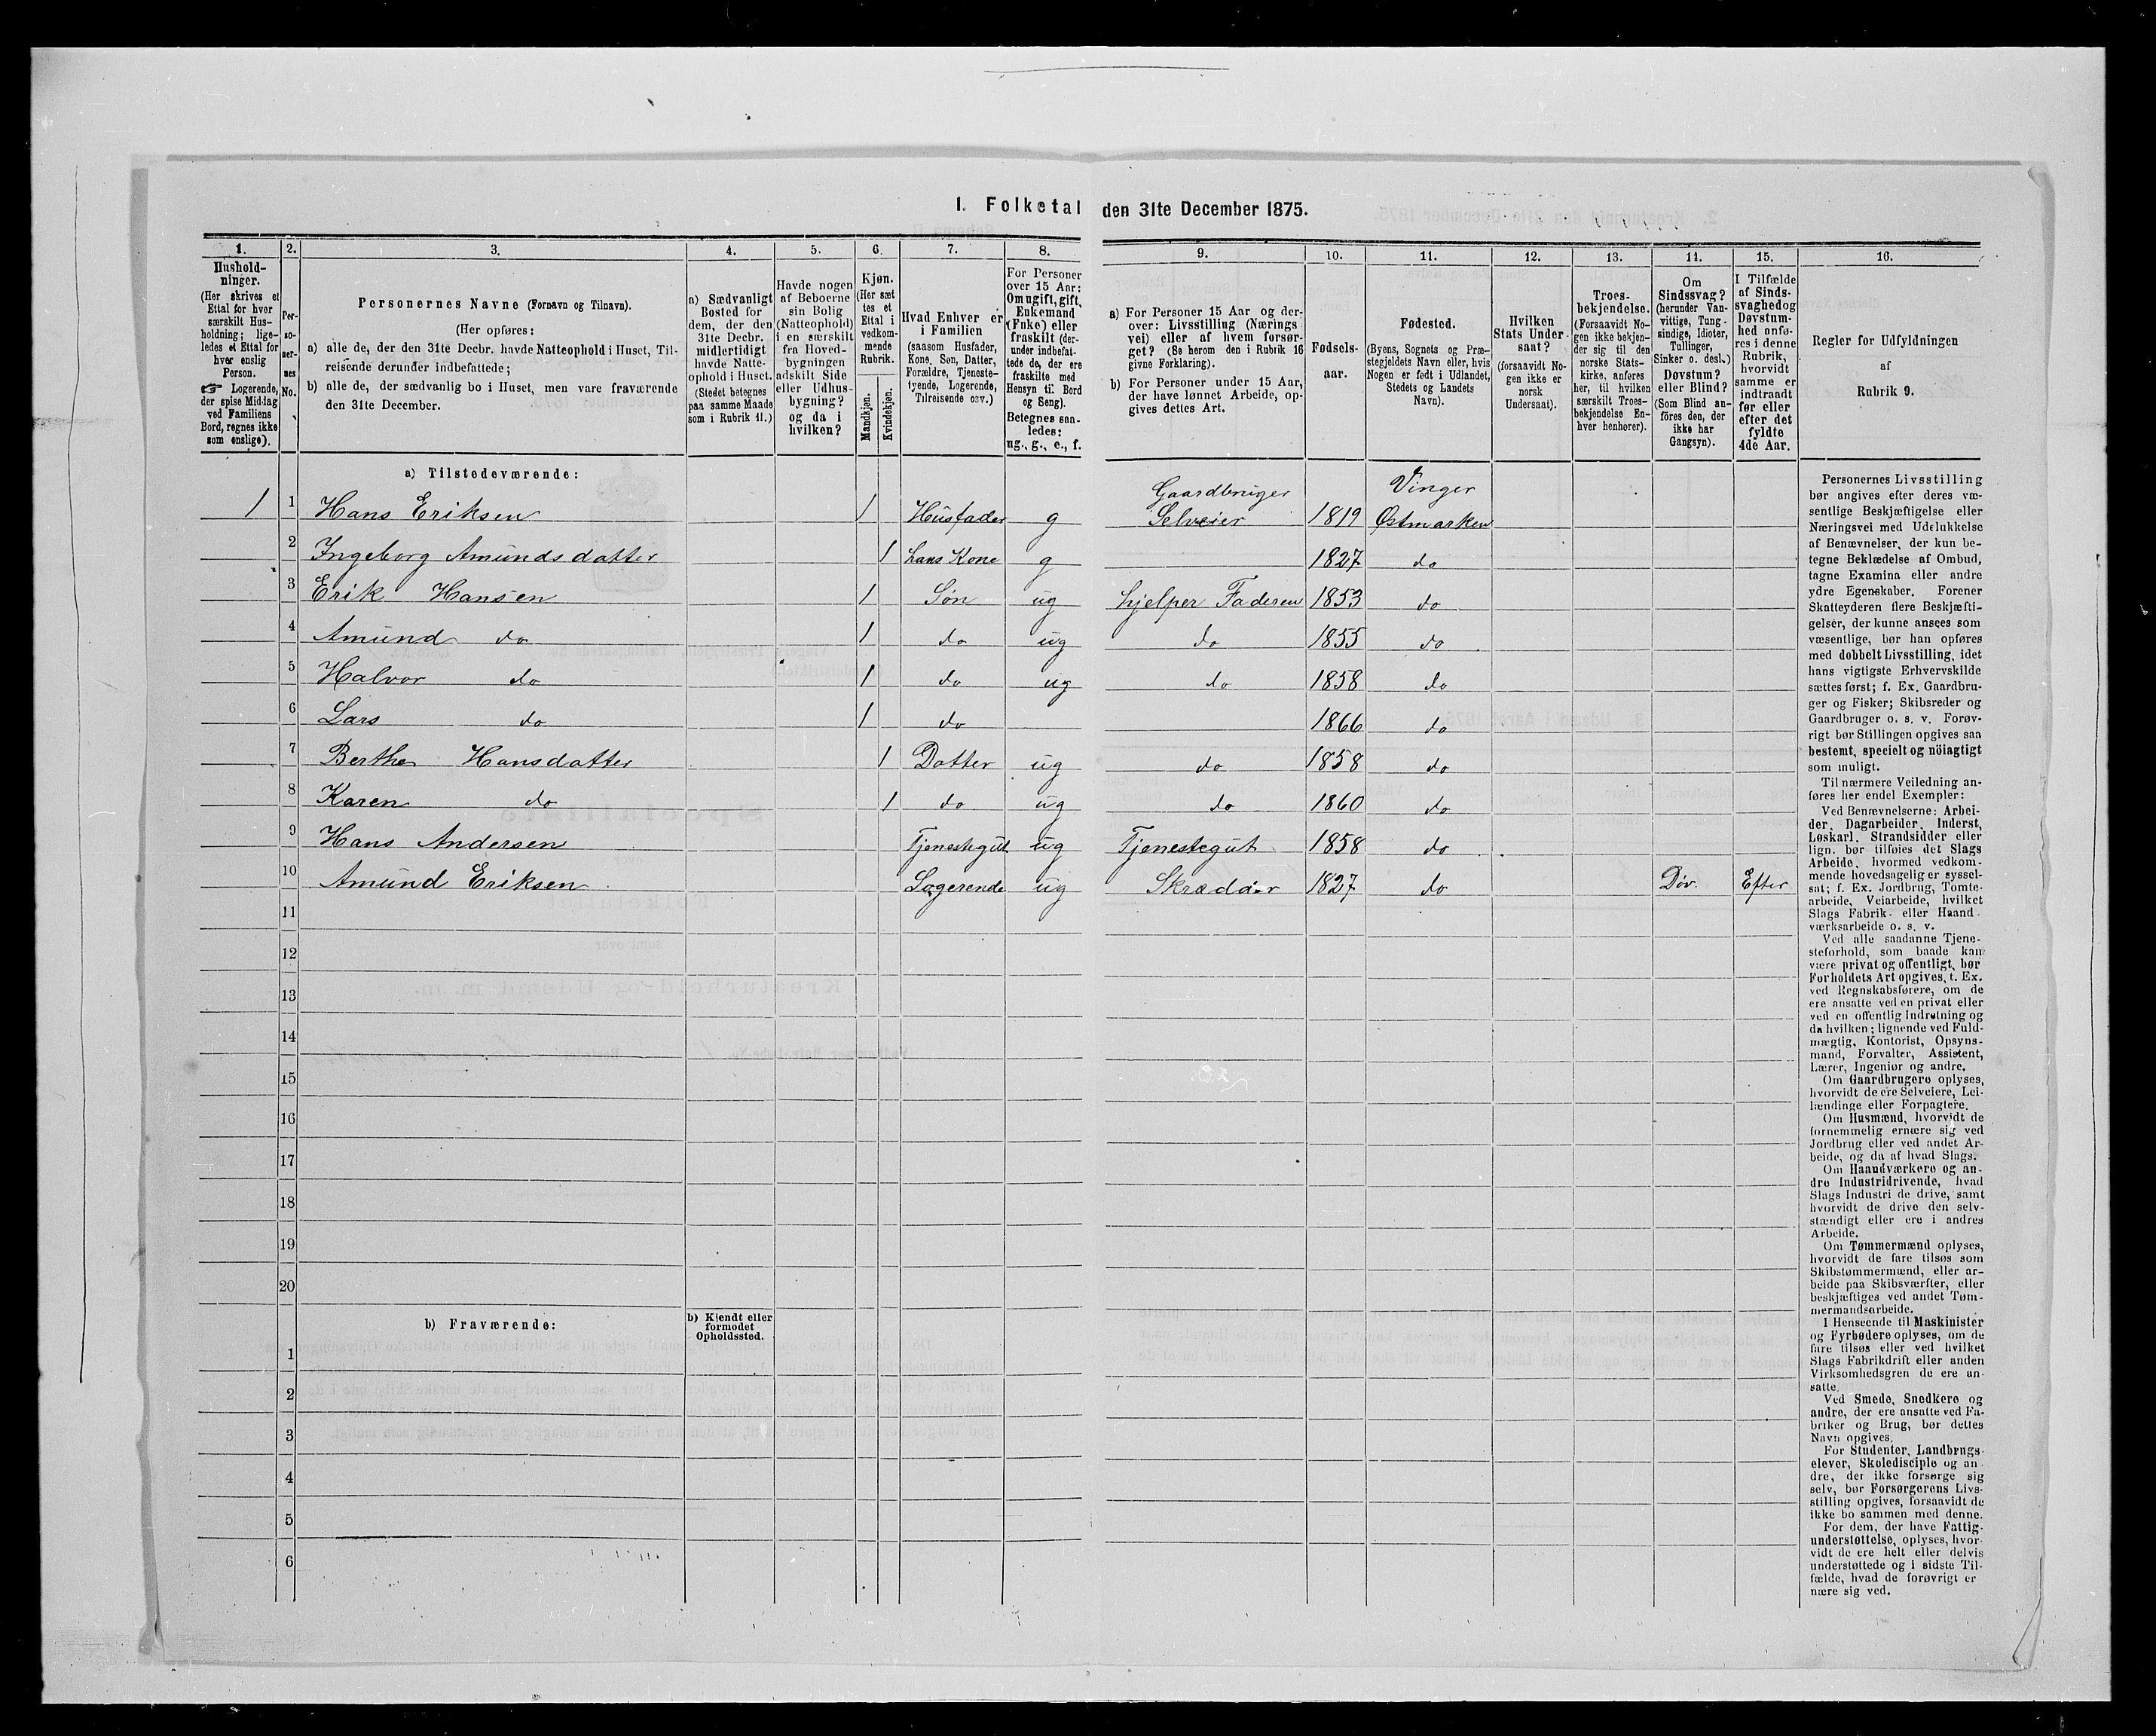 1. Folketal den 31te December 1875.
1. 2. 3. 4. 5. 6. 7. 8. 9. 10. 11. 12. 13. 11. 15. 16.
Hushold-
ninger.
(Her skrives et
Ettal for hver
særskilt Hus-
holdning; lige-
ledes et Ettal for
hver enslig
Person.
☞ Logerende,
der spise Middag
ved Familiens
Bord, regnes ikke
som enslige).
Per-
so-
ner-
nes
No.
Personernes Navne (Fornavn og Tilnavn).
(Her opføres:
a) alle de, der den 31te Decbr. havde Natteophold i Huset, Til-
reisende derunder indbefattede;
b) alle de, der sædvanlig bo i Huset, men vare fraværende
den 31te December.
a) Sædvanligt
Bosted for
dem, der den
31te Decbr.
midlertidigt
havde Natte-
ophold i Huset.
(Stedet betegnes
paa samme Maade
som i Rubrik 11.)
Havde nogen
af Beboerne
sin Bolig
(Natteophold)
i en særskilt
fra Hoved-
bygningen
adskilt Side
eller Udhus-
bygning?
og da i
hvilken?
Kjøn.
(Her sæt
tes et
Ettal i
vedkom-
mende
Rubrik.
Mandkjøn.
Kvindekjøn.
Hvad Enhver er
i Familien
(saasom Husfader,
Kone, Søn, Datter,
Forældre, Tjeneste-
tyende, Logerende,
Tilreisende osv.)
For Personer
over 15 Aar:
Om ugift, gift,
Enkemand
(Enke) eller
fraskilt (der-
under indbefat-
tede de, der ere
fraskilte med
Hensyn til Bord
og Seng).
Betegnes saa-
ledes:
ug., g., e., f.
a) For Personer 15 Aar og der-
over: Livsstilling (Nærings
vei) eller af hvem forsør-
get? (Se herom den i Rubrik 16
givne Forklaring).
b) For Personer under 15 Aar,
der have lønnet Arbeide, op-
gives dettes Art.
Fødsels-
aar.
Fødested.
(Byens, Sognets og Præ-
stegjeldets Navn eller, hvis
Nogen er født i Udlandet,
Stedets og Landets
Navn).
Hvilken
Stats Under-
saat?
(forsaavidt No-
gen ikke er
norsk
Undersaat).
Troes-
bekjendelse.
(Forsaavidt No-
gen ikke bekjen-
der sig til den
norske Stats-
kirke, anføres
her, til hvilken
særskilt Troes-
bekjendelse En-
hver henhører).
Om
Sindssvag?
(herunder Van-
vittige, Tung-
sindige, Idioter,
Tullinger,
Sinker o. desl.)
Døvstum?
eller Blind?
(Som Blind an-
föres den, der
ikke har
Gangsyn).
I Tilfælde
af Sinds-
svaghedog
Døvstum-
hed anfø-
res i denne
Rubrik,
hvorvidt
samme er
indtraadt
før eller
efter det
fyldte
4de Aar.
Regler for Udfyldningen
af
Rubrik 9.
a) Tilstedeværende:
Gaardbruger Vinger
1 1 Hans Eriksen 1 Husfader g Selveier 1819 Østmarken
2 Ingeborg Amundsdatter 1 hans Kone g 1827 do
3 Erik Hansen 1 Søn ug hjelper Faderen 1853 do
4 Amund do 1 do ug do 1855 do
5 Halvor do 1 do ug do 1858 do
6 Lars do 1 do 1866 do
7 Berthe Hansdatter 1 Datter ug do 1858 do
8 Karen do 1 do ug do 1860 do
9 Hans Andersen Tjenestegut ug Tjenestegut 1858 do
10 Amund Eriksen Logerende ug Skrædder 1827 do Døv. Efter
11
12
13
14
15
16
17
18
19
20
b) Fraværende:
b) Kjendt eller
formodet
Opholdssted.
1
2
3
4
5
6
Personernes Livsstilling
bør angives efter deres væ-
sentlige Beskjæftigelse eller
Næringsvei med Udelukkelse
af Benævnelser, der kun be-
tegne Beklædelse af Ombud,
tagne Examina eller andre
ydre Egenskaber. Forener
Skatteyderen flere Beskjæfti-
gelser, der kunne ansees som
væsentlige, bør han opføres
med dobbelt Livsstilling, idet
hans vigtigste Erhvervskilde
sættes først; f. Ex. Gaardbru-
ger og Fisker; Skibsreder og
Gaardbruger o. s. v. Forøv-
rigt bør Stillingen opgives saa
bestemt, specielt og nöiagtigt
som muligt.
Til nærmere Veiledning an-
føres her endel Exempler:
Ved Benævnelserne: Arbei-
der, Dagarbeider, Inderst,
Løskarl, Strandsidder eller
lign. bør tilføies det Slags
Arbeide, hvormed vedkom-
mende hovedsagelig er syssel-
sat; f. Ex. Jordbrug, Tomte-
arbeide, Veiarbeide, hvilket
Slags Fabrik- eller Haand-
værksarbeide o. s. v.
Ved alle saadanne Tjene-
steforhold, som baade kan
være privat og offentligt, bør
Forholdets Art opgives, t. Ex.
ved Regnskabsførere, om de
ere ansatte ved en privat eller
ved en offentlig Indretning og
da hvilken; lignende ved Fuld-
mægtig, Kontorist, Opsyns-
mand, Forvalter, Assistent,
Lærer, Ingeniør og andre.
Om Gaardbrugere oplyses,
hvorvidt de ere Selveiere, Lei-
lændinge eller Forpagtere.
Om Husmænd, hvorvidt de
fornemmelig ernære sig ved
Jordbrug eller ved andet Ar-
beide, og da af hvad Slags.
Om Haandværkere og an-
dre Industridrivende, hvad
Slags Industri de drive, samt
hvorvidt de drive den selv-
stændigt eller ere i andres
Arbeide.
Om Tømmermænd oplyses,
hvorvidt de fare tilsøs som
Skibstømmermænd, eller ar-
beide paa Skibsværfter, eller
beskjæftiges ved andet Tøm-
mermandsarbeide.
I Henseende til Maskinister
og Fyrbødere oplyses, om de
fare tilsøs eller ved hvilket
Slags Fabrikdrift eller anden
Virksomhedsgren de ere an-
satte.
Ved Smede, Snedkere og
andre, der ere ansatte ved Fa-
briker og Brug, bør dettes
Navn opgives.
For Studenter, Landbrugs-
elever, Skoledisciple og an-
dre, der ikke forsørge sig
selv, bør Forsørgerens Livs-
stilling opgives, forsaavidt de
ikke bo sammen med denne.
For dem, der have Fattig-
understøttelse, oplyses, hvor-
vidt de ere helt eller delvis
understøttede og i sidste Til-
fælde, hvad de forøvrigt er
nære sig ved.